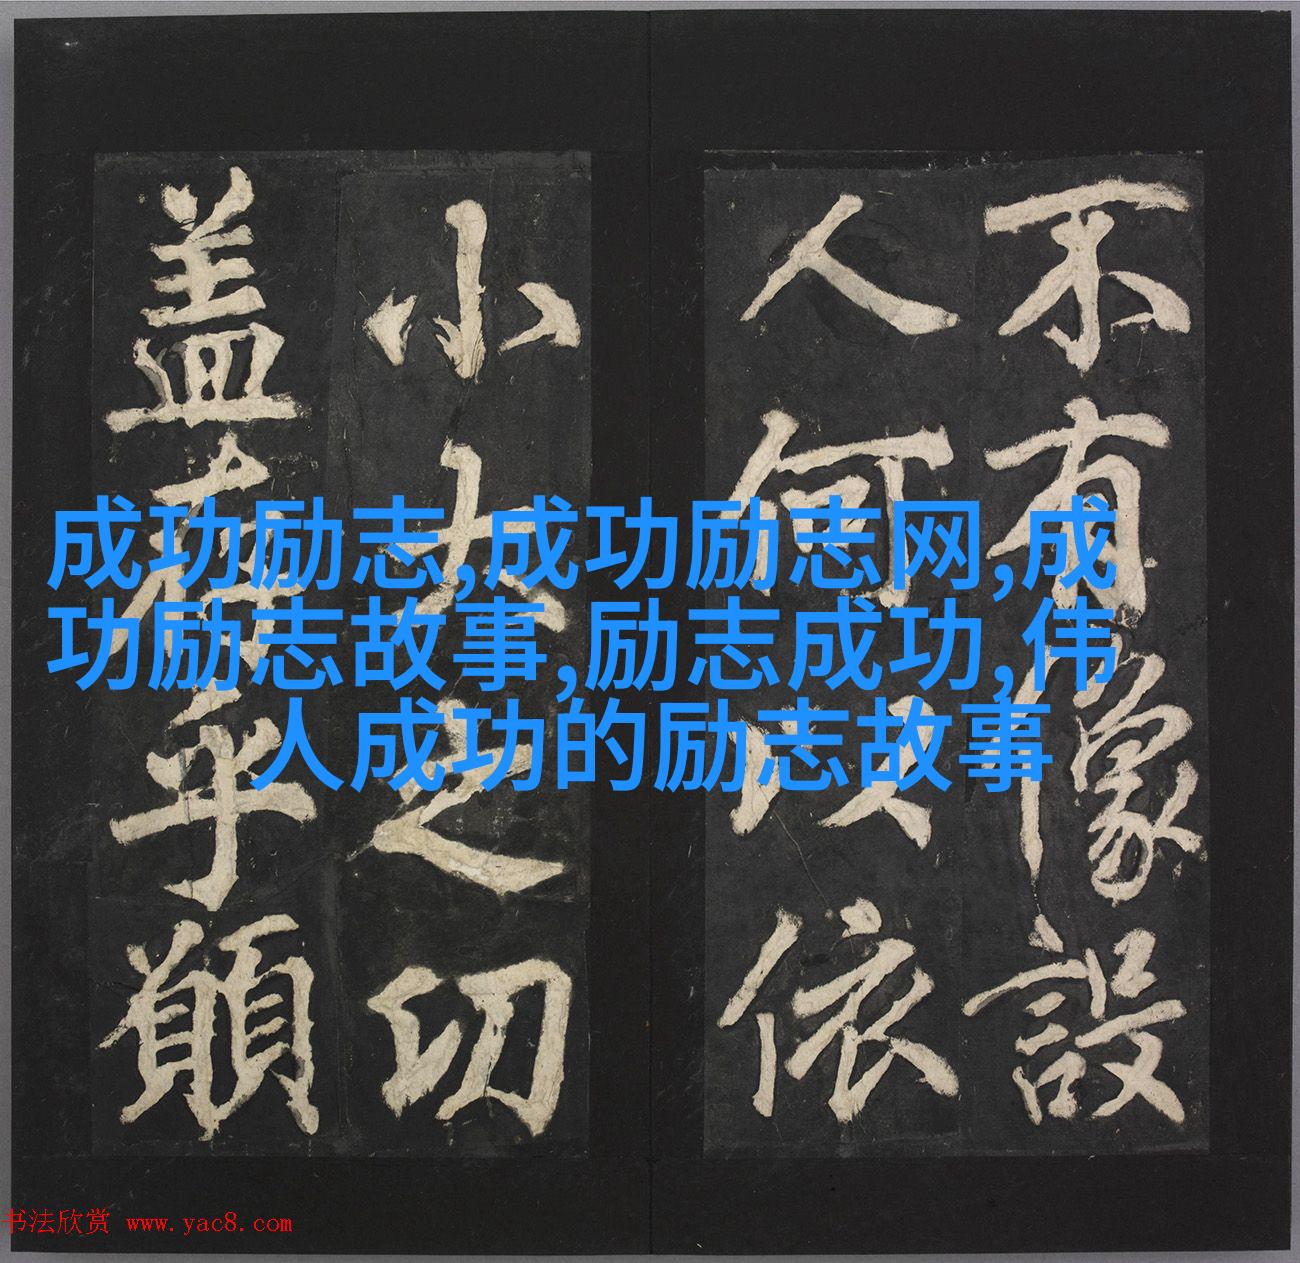 不有像設
人何以依
小大之功
盖存乎願
成功励志,成功励志网,成
功励志故事,励志成功,伟
人成功的励志故事
书法欣赏 www.yac8.com